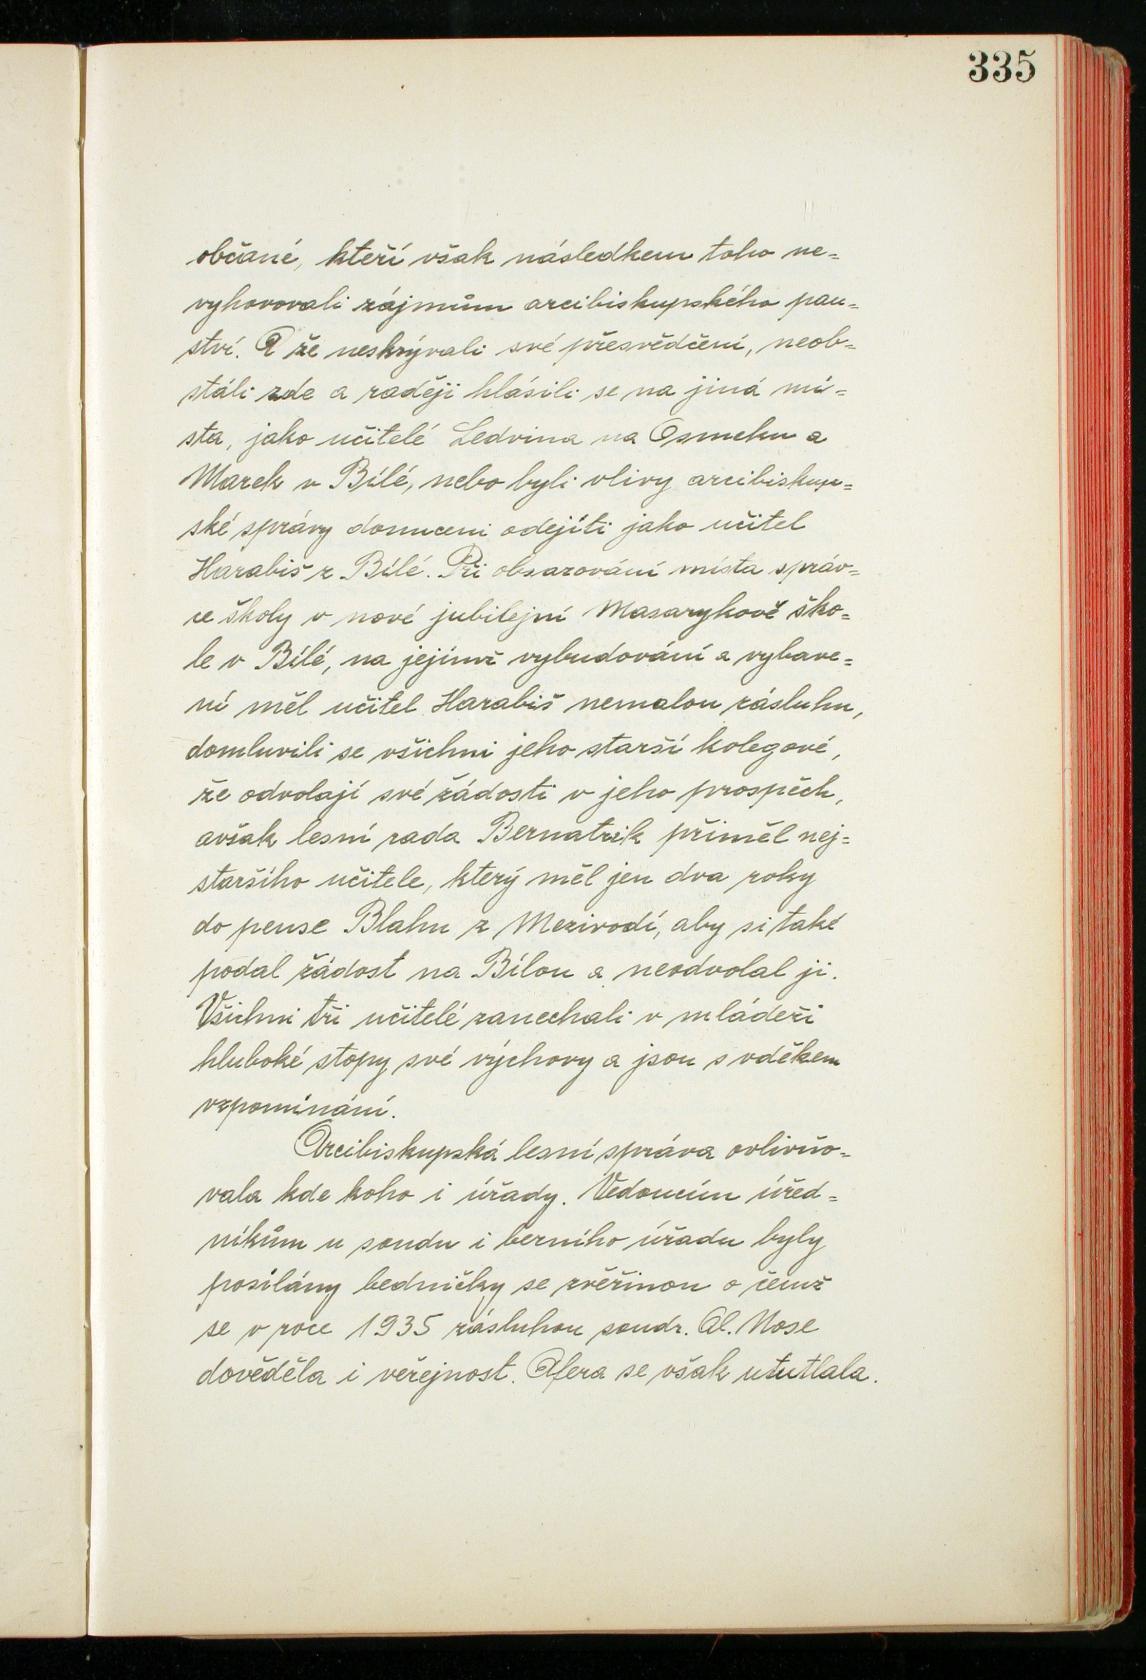 335
občané, kteří však následkem toho ne=
vyhovovali zájmům arcibiskupského pan=
ství. A že neskrývali své přesvědčení, neob=
stáli zde a raději hlásili se na jiná mí=
sta, jako učitelé Ledvina na Osmeku a
Marek v Bílé, nebo byli vlivy arcibiskup=
ské správy donuceni odejíti jako učitel
Harabiš z Bílé. Při obsazování místa správ=
ce školy v nové jubilejní Masarykově ško=
le v Bílé, na jejímž vybudování a vybave=
ní měl učitel Harabiš nemalou zásluhu,
domluvili se všichni jeho starší kolegové,
že odvolají své žádosti v jeho prospěch,
avšak lesní rada Bernatzik přiměl nej=
staršího učitele, který měl jen dva roky
do pense Blahu z Mezivodí, aby si také
podal žádost na Bílou a neodvolal ji.
Všichni tři učitelé zanechali v mládeži
hluboké stopy své výchovy a jsou s vděkem
vzpomínáni.
Arcibiskupská lesní správa ovlivňo=
vala kde koho i úřady. Vedoucím úřed=
níkům u soudu i berního úřadu byly
posílány bedničky se zvěřinou o čemž
se v roce 1935 zásluhou soudr. Al. Nose
dověděla i veřejnost. Afera se však ututlala.